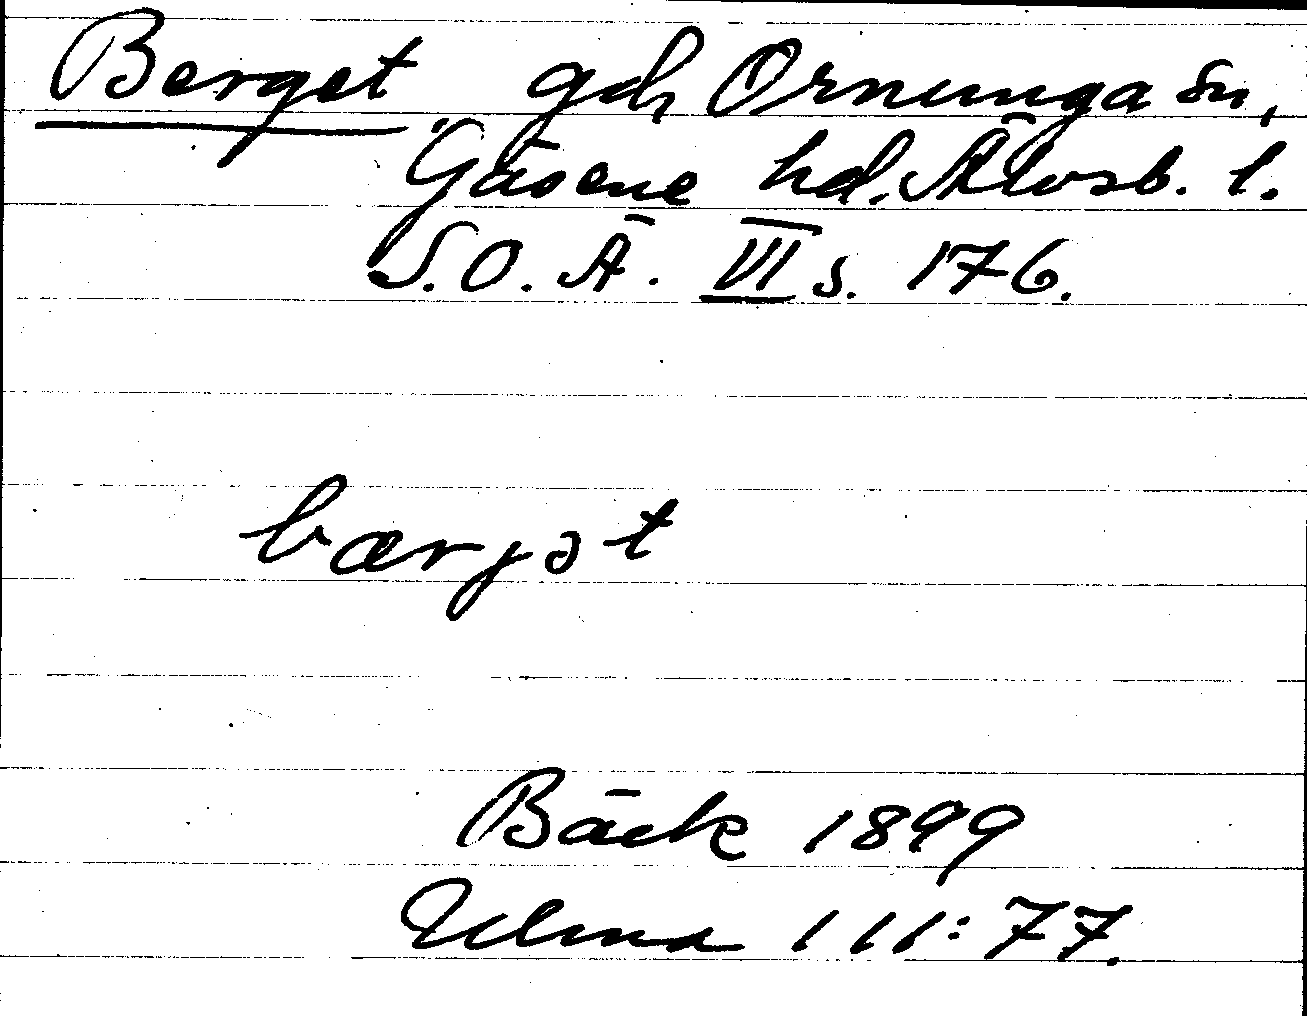 Berget gdh Ornunga sn,
Gäsene hd. Älvsb. l.
S.O.Ä. VI s. 176.
bærjət
Bäck 1899
Ulma 111:77.